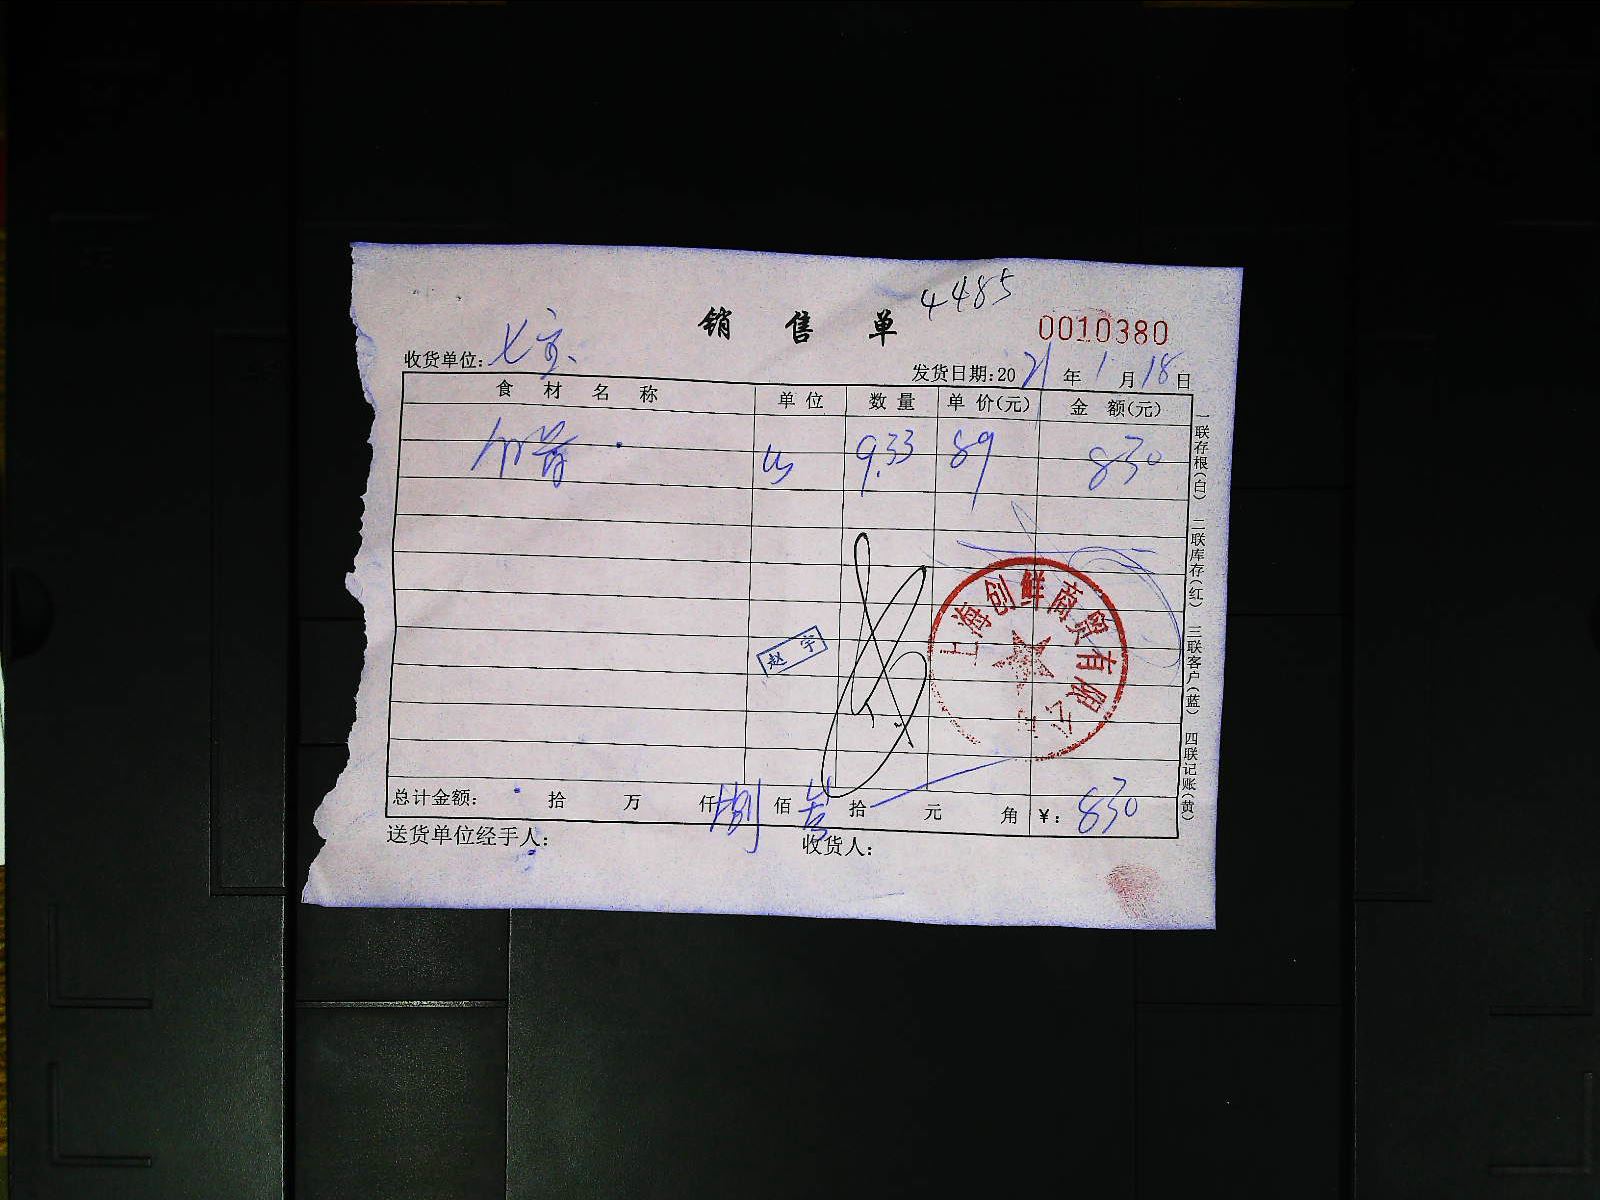 4485
销 售 单
0010380
收货单位:
发货日期:2021年1月18日
食 材 名 称 单 位 数 量 单 价(元) 金 额(元)
9.33 89 830
赵 宇
上海创鲜商贸有限公司
总计金额: 拾 万 仟捌佰叁拾 元 角 ¥: 830
送货单位经手人: 收货人:
一联存根(白) 二联库存(红) 三联客户(蓝) 四联记账(黄)